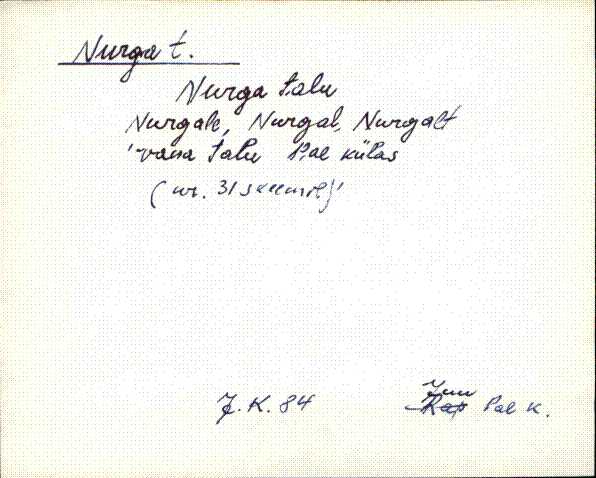 Nurga t.
Nurga talu
Nurgale, Nurgal, Nurgalt
'vana talu Pae külas
(nr. 31 skeemil)'
J. K. 84
Juu
Rap Pae k.